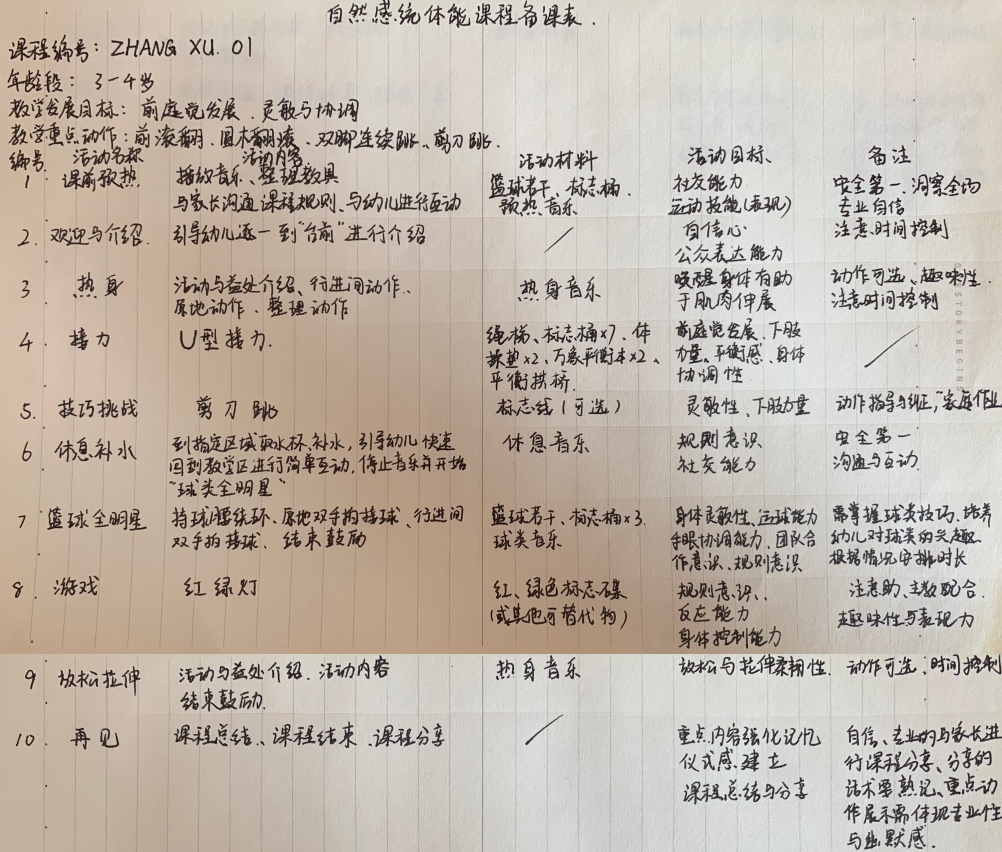 自然感统体能课程备课表.
课程编号: ZHANG XU. 01
年龄段: 3-4岁
教学发展目标: 前庭觉发展、灵敏与协调
教学重点动作: 前滚翻、圆木翻滚、双脚连续跳、剪刀跳.
编号 活动名称 活动内容 活动材料 活动目标、 备注
1 课前预热 播放音乐、整理教具 篮球若干、标志桶、 社交能力 安全第一、洞察全场
与家长沟通课程规则、与幼儿进行互动 预热音乐 运动技能(表现) 专业自信
2. 欢迎与介绍. 引导幼儿逐一到"台前"进行介绍 / 自信心 注意时间控制
公众表达能力
3 热身 活动与益处介绍、行进间动作、 热身音乐 唤醒身体有助 动作可选、趣味性.
原地动作、整理动作 于肌肉伸展 注意时间控制
4. 接力 U型接力. 绳梯、标志桶×7、体 前庭觉发展、下肢 /
操垫×2、万象平衡木×2、 力量、平衡感、身体
平衡拱桥. 协调性
5. 技巧挑战 剪刀跳 标志线(可选) 灵敏性、下肢力量 动作指导与纠正,"家庭作业
6 休息补水 到指定区域取水杯、补水,引导幼儿快速 休息音乐 规则意识 安全第一
回到教学区进行简单互动,停止音乐并开始 社交能力 沟通与互动
"球类全明星"
7 篮球全明星 持球腰绕环、原地双手拍接球、行进间 篮球若干、标志桶×3. 身体灵敏性、运球能力 需掌握球类技巧、培养
双手拍接球、结束鼓励 球类音乐 手眼协调能力、团队合 幼儿对球类的兴趣、
作意识、规则意识 根据情况安排时长
8. 游戏 红绿灯 红、绿色标志碟 规则意识、 注意助、主教配合.
(或其他可替代物) 反应能力 趣味性与表现力
身体控制能力
STORY BEGINS
9 放松拉伸 活动与益处介绍. 活动内容 热身音乐 放松与拉伸柔韧性. 动作可选、时间控制
结束鼓励.
10. 再见 课程总结、课程结束、课程分享 / 重点内容强化记忆 自信、专业的与家长进
仪式感建立 行课程分享、分享的
课程总结与分享 话术要熟记、重点动
作展示需体现专业性
与幽默感.